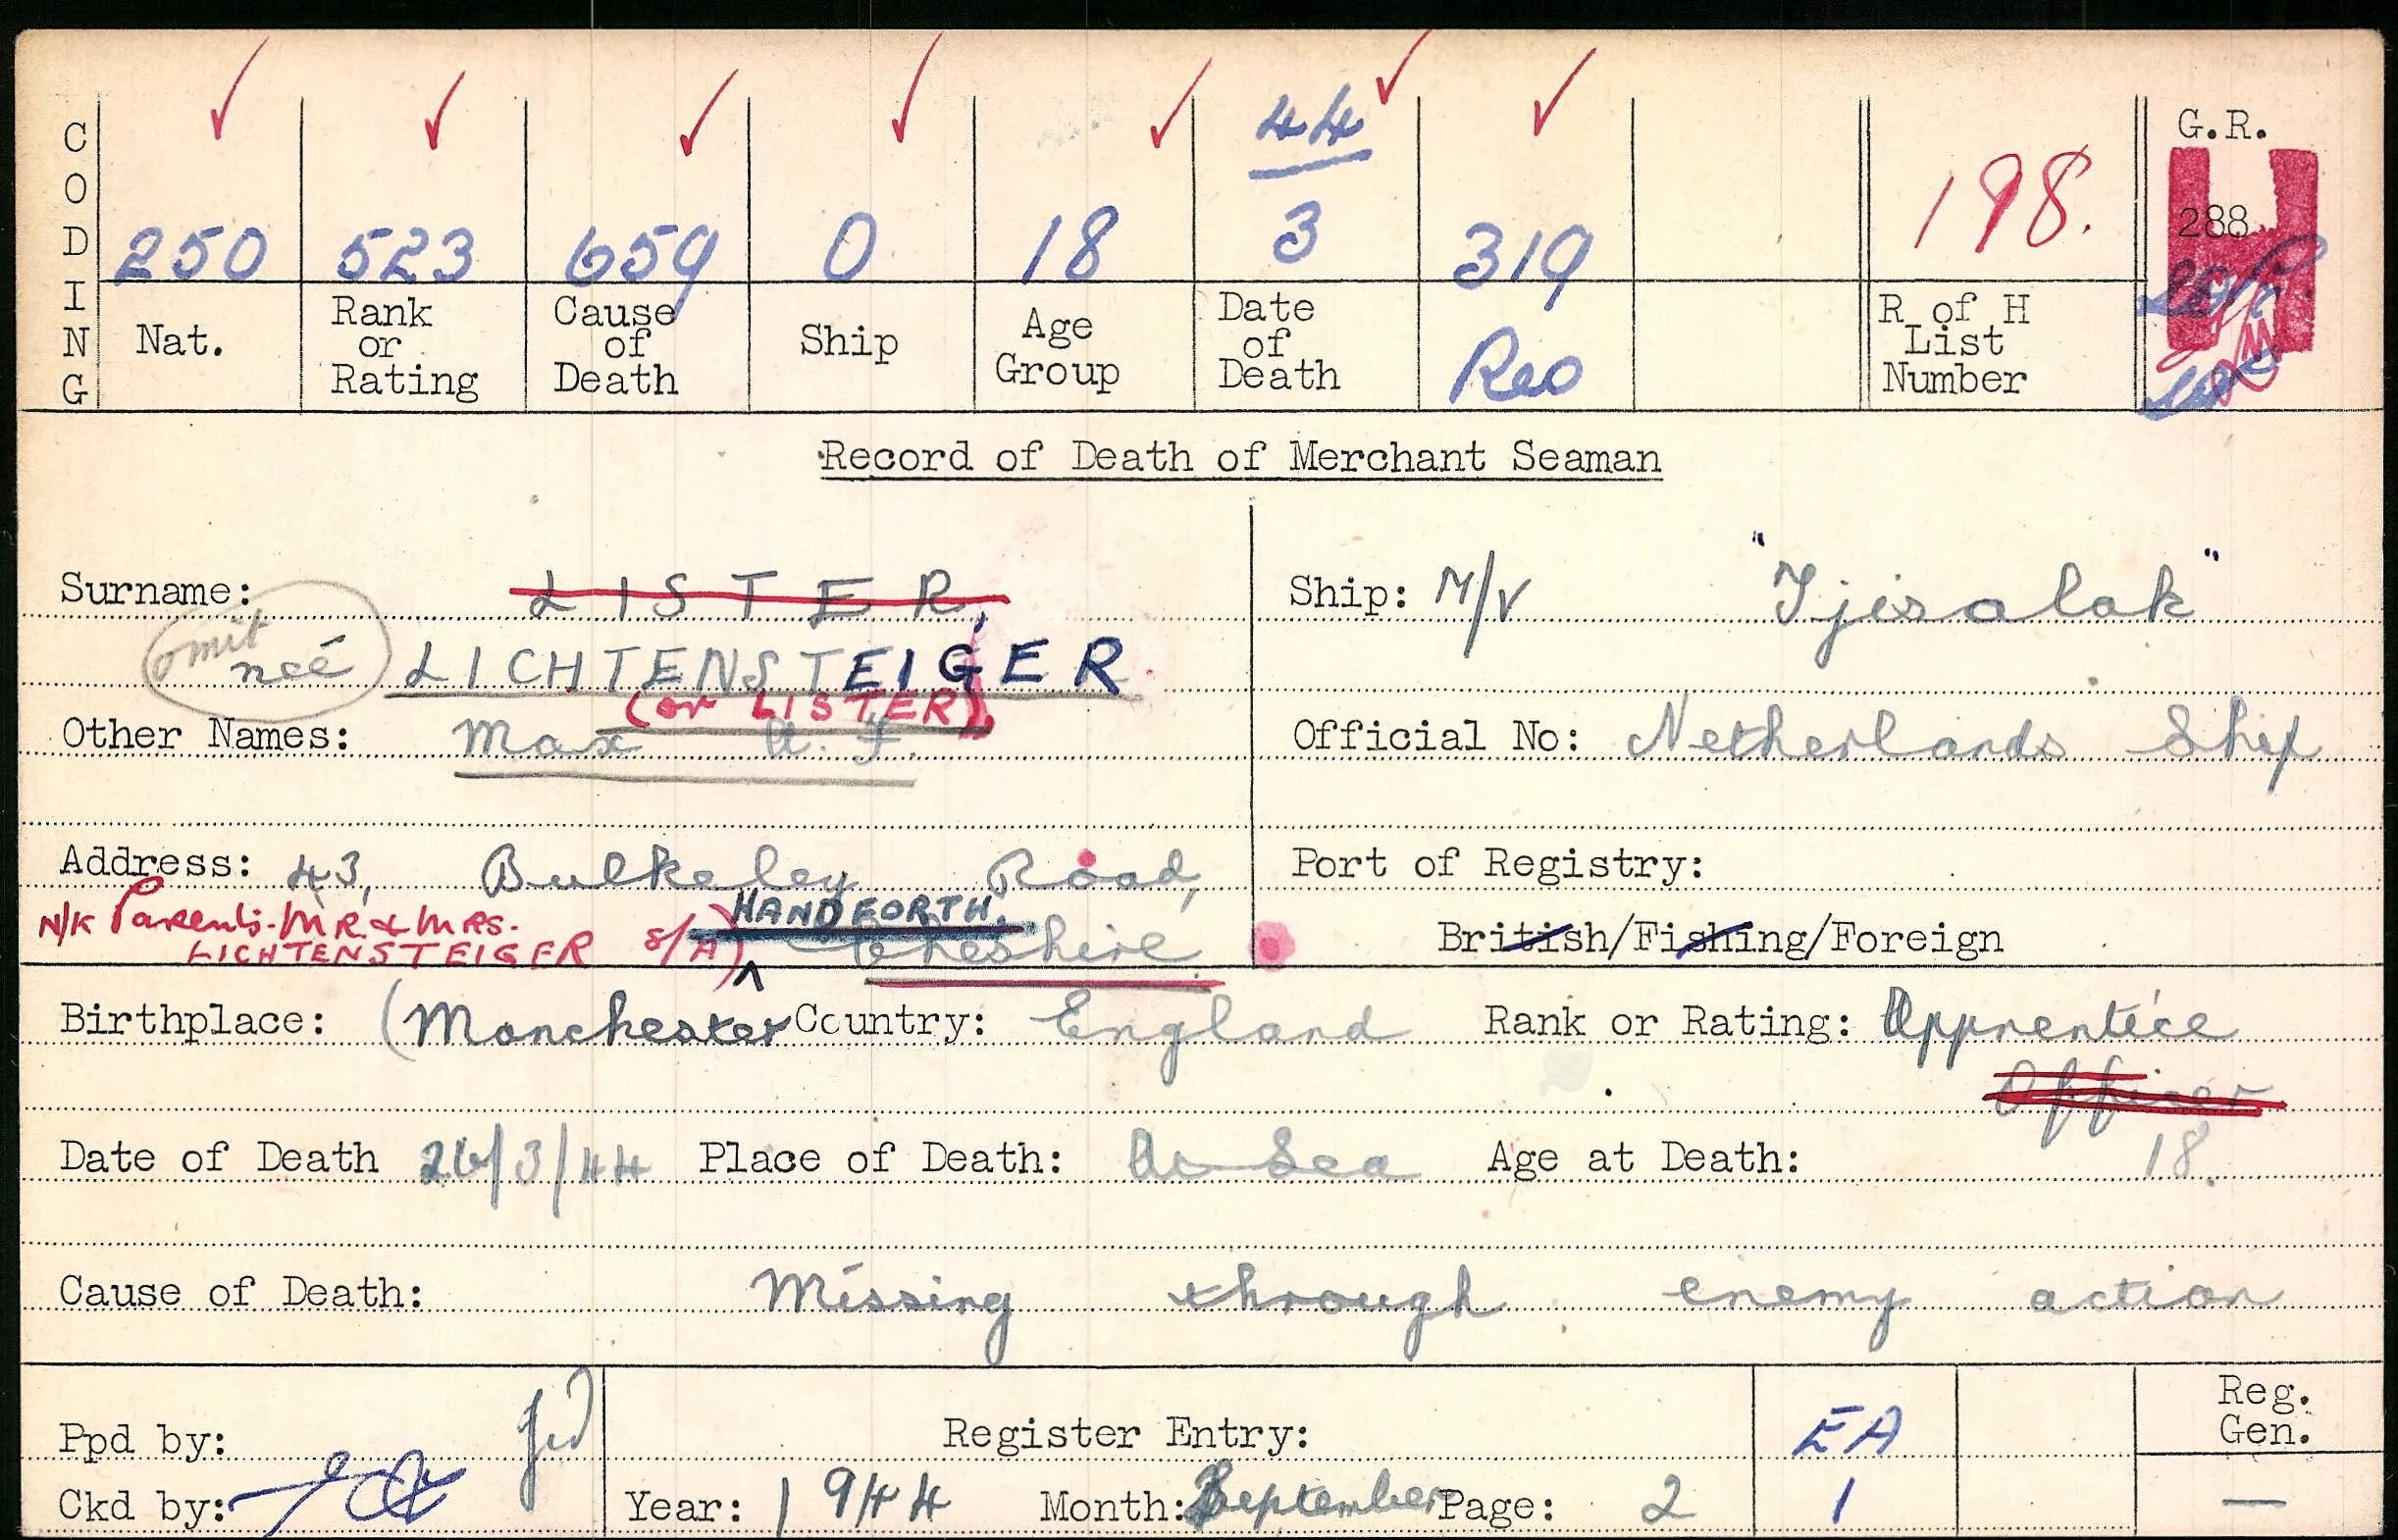 CODING
44
G.R.
250 523 659 0 18 3 319 198. 288
Nat. Rank or Rating Cause of Death Ship Age Group Date of Death Reo R of H List Number
Record of Death of Merchant Seaman
Surname: LISTER, Ship: M/V "Tjisalak"
omit neé LICHTENSTEIGER
(or LISTER)
Other Names: Max A. F. Official No: Netherlands Ship
Address: 43, Bulkeley Road, Port of Registry:
N/K Parents- MR & MRS. HANDFORTH,
LICHTENSTEIGER S/A) Cheshire British/Fishing/Foreign
Birthplace: (Manchester Country: England Rank or Rating: Apprentice
Officer
Date of Death 26/3/44 Place of Death: At Sea Age at Death: 18
Cause of Death: Missing through enemy action
Reg.
Ppd by: Register Entry: EA Gen.
Ckd by: Year: 1944 Month: September Page: 2 1 —